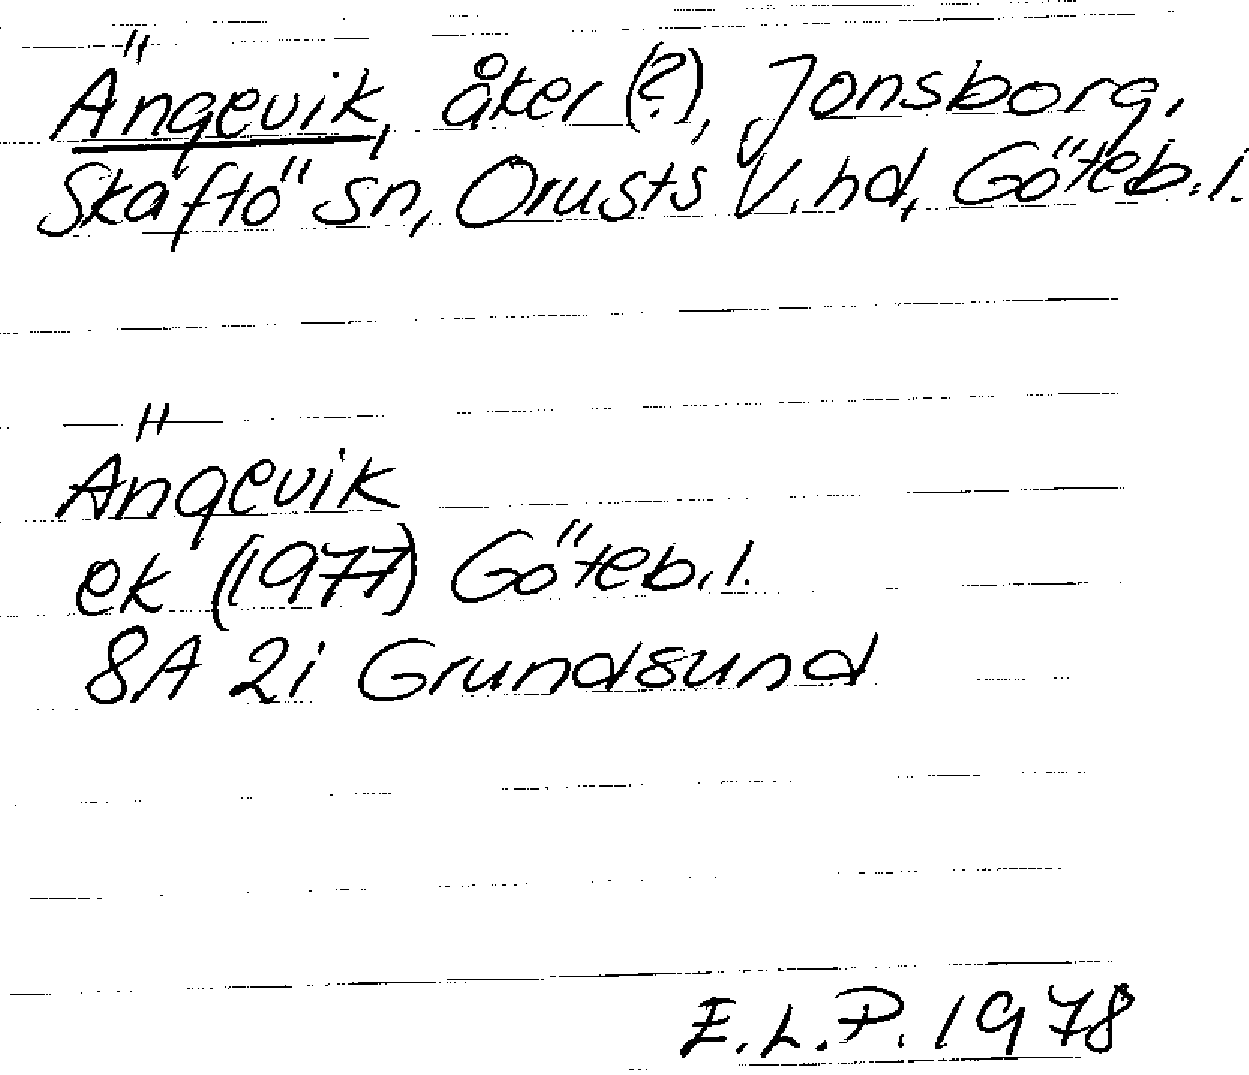 Ängevik, åker (?), Jonsborg,
Skaftö sn, Orusts V. hd, Göteb. l.
Ängevik
ek (1977) Göteb. l.
8A 2i Grundsund
E.L.P. 1978